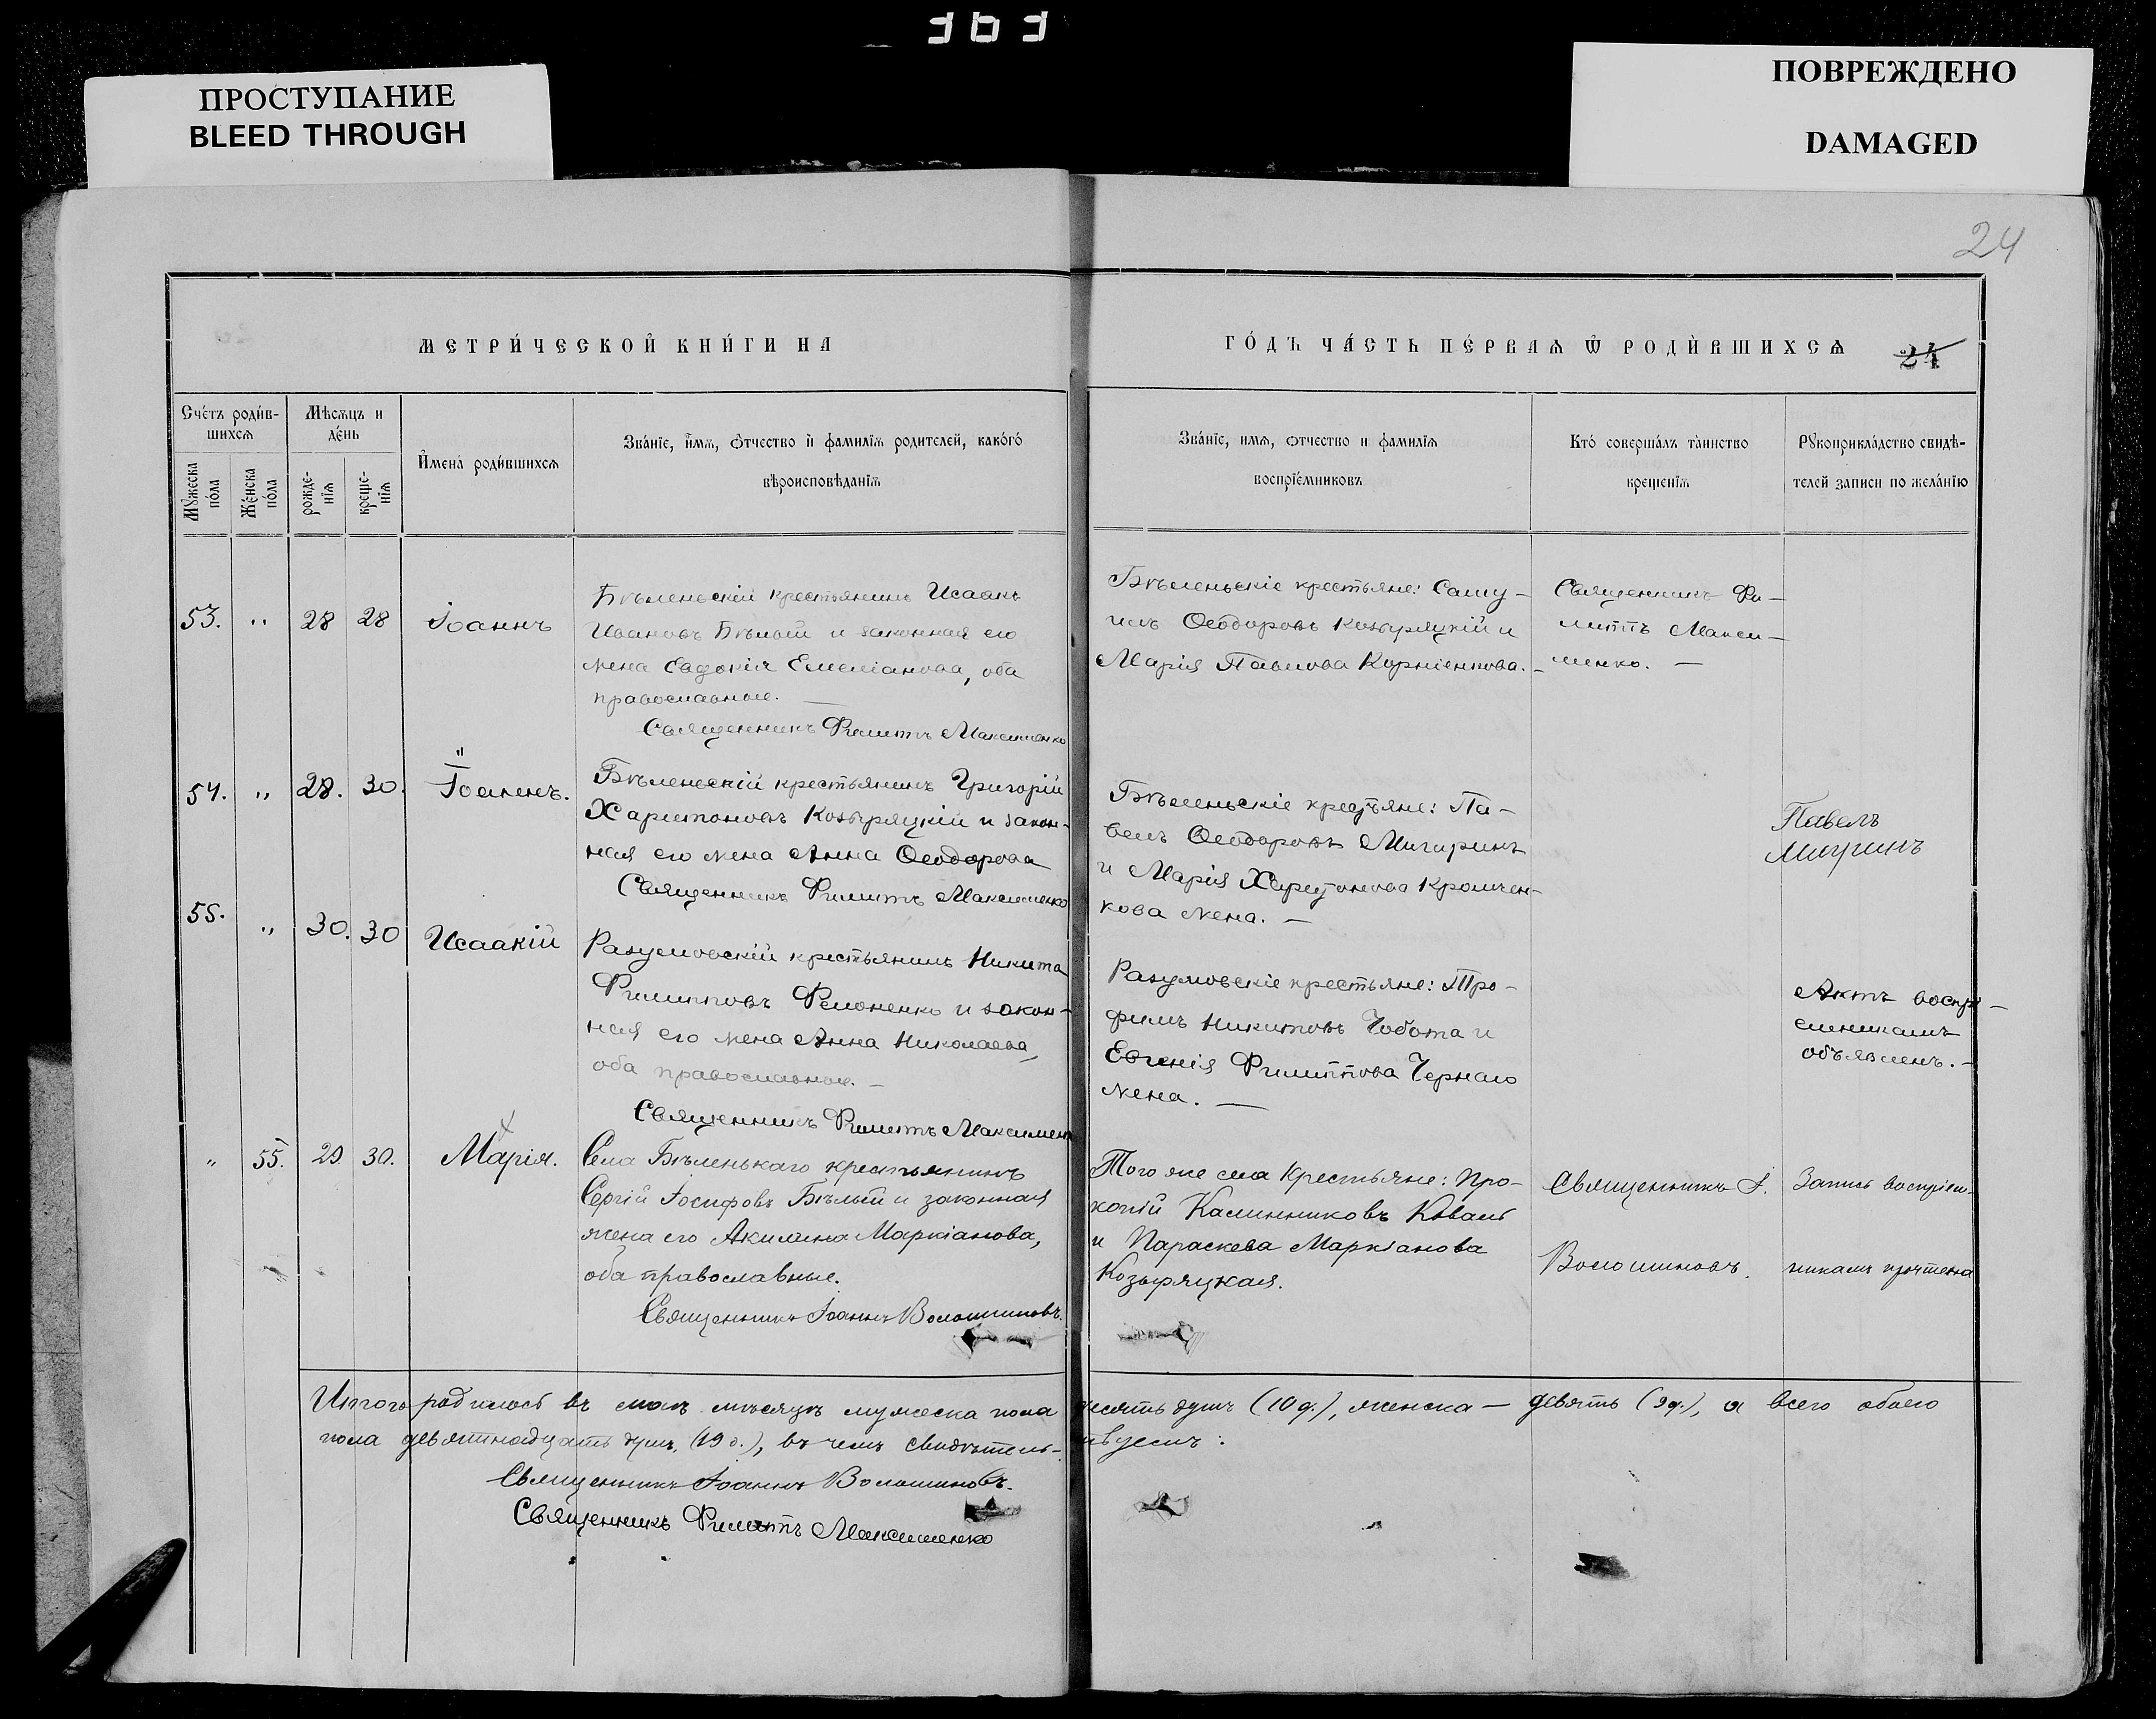 ПРОСТУПАНИЕ
BLEED THROUGH
ПОВРЕЖДЕНО
DAMAGED
24
МЕТРИ́ЧЕСКОЙ КНИ́ГИ НА
ГО́ДЪ ЧА́СТЬ ПЕ́РВАѦ Ѿ РОДИ́ВШИХСѦ
24
Сче́тъ роди́в-
шихсѧ
Мѣ́сѧцъ и
де́нь
Мꙋ́жеска
по́ла
Же́нска
по́ла
рожде-
нїѧ
креще-
нїѧ
И҆мена̀ роди́вшихсѧ
Зва́нїе, и҆́мѧ, ѻ҆́тчество и҆ фамилїѧ родителей, како́гѡ
вѣроисповѣ́данїѧ
Зва́нїе, имѧ, ѻтчество и фамилїѧ
воспрїе́мниковъ
Кто̀ соверша́лъ та́инство
креще́нїѧ
Рꙋкоприкла́дство свидѣ́-
телей записи по жела́нїю
53.
"
28
28
Іоаннъ
Бѣленьскій крестьянинъ Исаакъ
Ивановъ Бѣлый и законная его
жена Евдокія Емеліанова, оба
православные. —
Священникъ Филиппъ Максименко
Бѣленьскіе крестьяне: Саму-
илъ Ѳеодоровъ Козыряцкій и
Марія Павлова Корніенкова. -
Священникъ Фи-
липпъ Макси-
менко. —
54.
"
28.
30.
Іоаннъ.
Бѣленьскій крестьянинъ Григорій
Харитоновъ Козыряцкій и закон-
ная его жена Анна Ѳеодорова
Священникъ Филиппъ Максименко
Бѣленьскіе крестьяне: Па-
велъ Ѳеодоровъ Мигиринъ
и Марія Харитонова Кромчен-
кова жена. —
Павелъ
55.
"
30.
30
Исаакій
Разумовскій крестьянинъ Никита
Филипповъ Филоненко и закон-
ная его жена Анна Николаева,
оба православные. —
Священникъ Филиппъ Максименко
Разумовскіе крестьяне: Тро-
фимъ Никитовъ Чобота и
Евгенія Филиппова Чернаго
жена. —
Актъ воспрі-
емникамъ
объявленъ. -
"
55.
29.
30.
Марія.
Села Бѣленькаго крестьянинъ
Сергій Іосифовъ Бѣлый и законная
жена его Акилина Маркіанова,
оба православные.
Священникъ Іоаннъ Волошиновъ.
Того же села крестьяне: Про-
копій Калинниковъ Коваль
и Параскева Маркіанова
Козыряцкая.
Священникъ І.
Волошиновъ.
Запись воспріем-
никамъ прочтена
Итого родилось въ маѣ мѣсяцѣ мужеска пола десять душъ (10 д.), женска — девять (9 д.), а всего обоего
пола девятнадцать душъ (19 д.), въ чемъ свидѣтельствуемъ:
Священникъ Іоаннъ Волошиновъ.
Священникъ Филиппъ Максименко